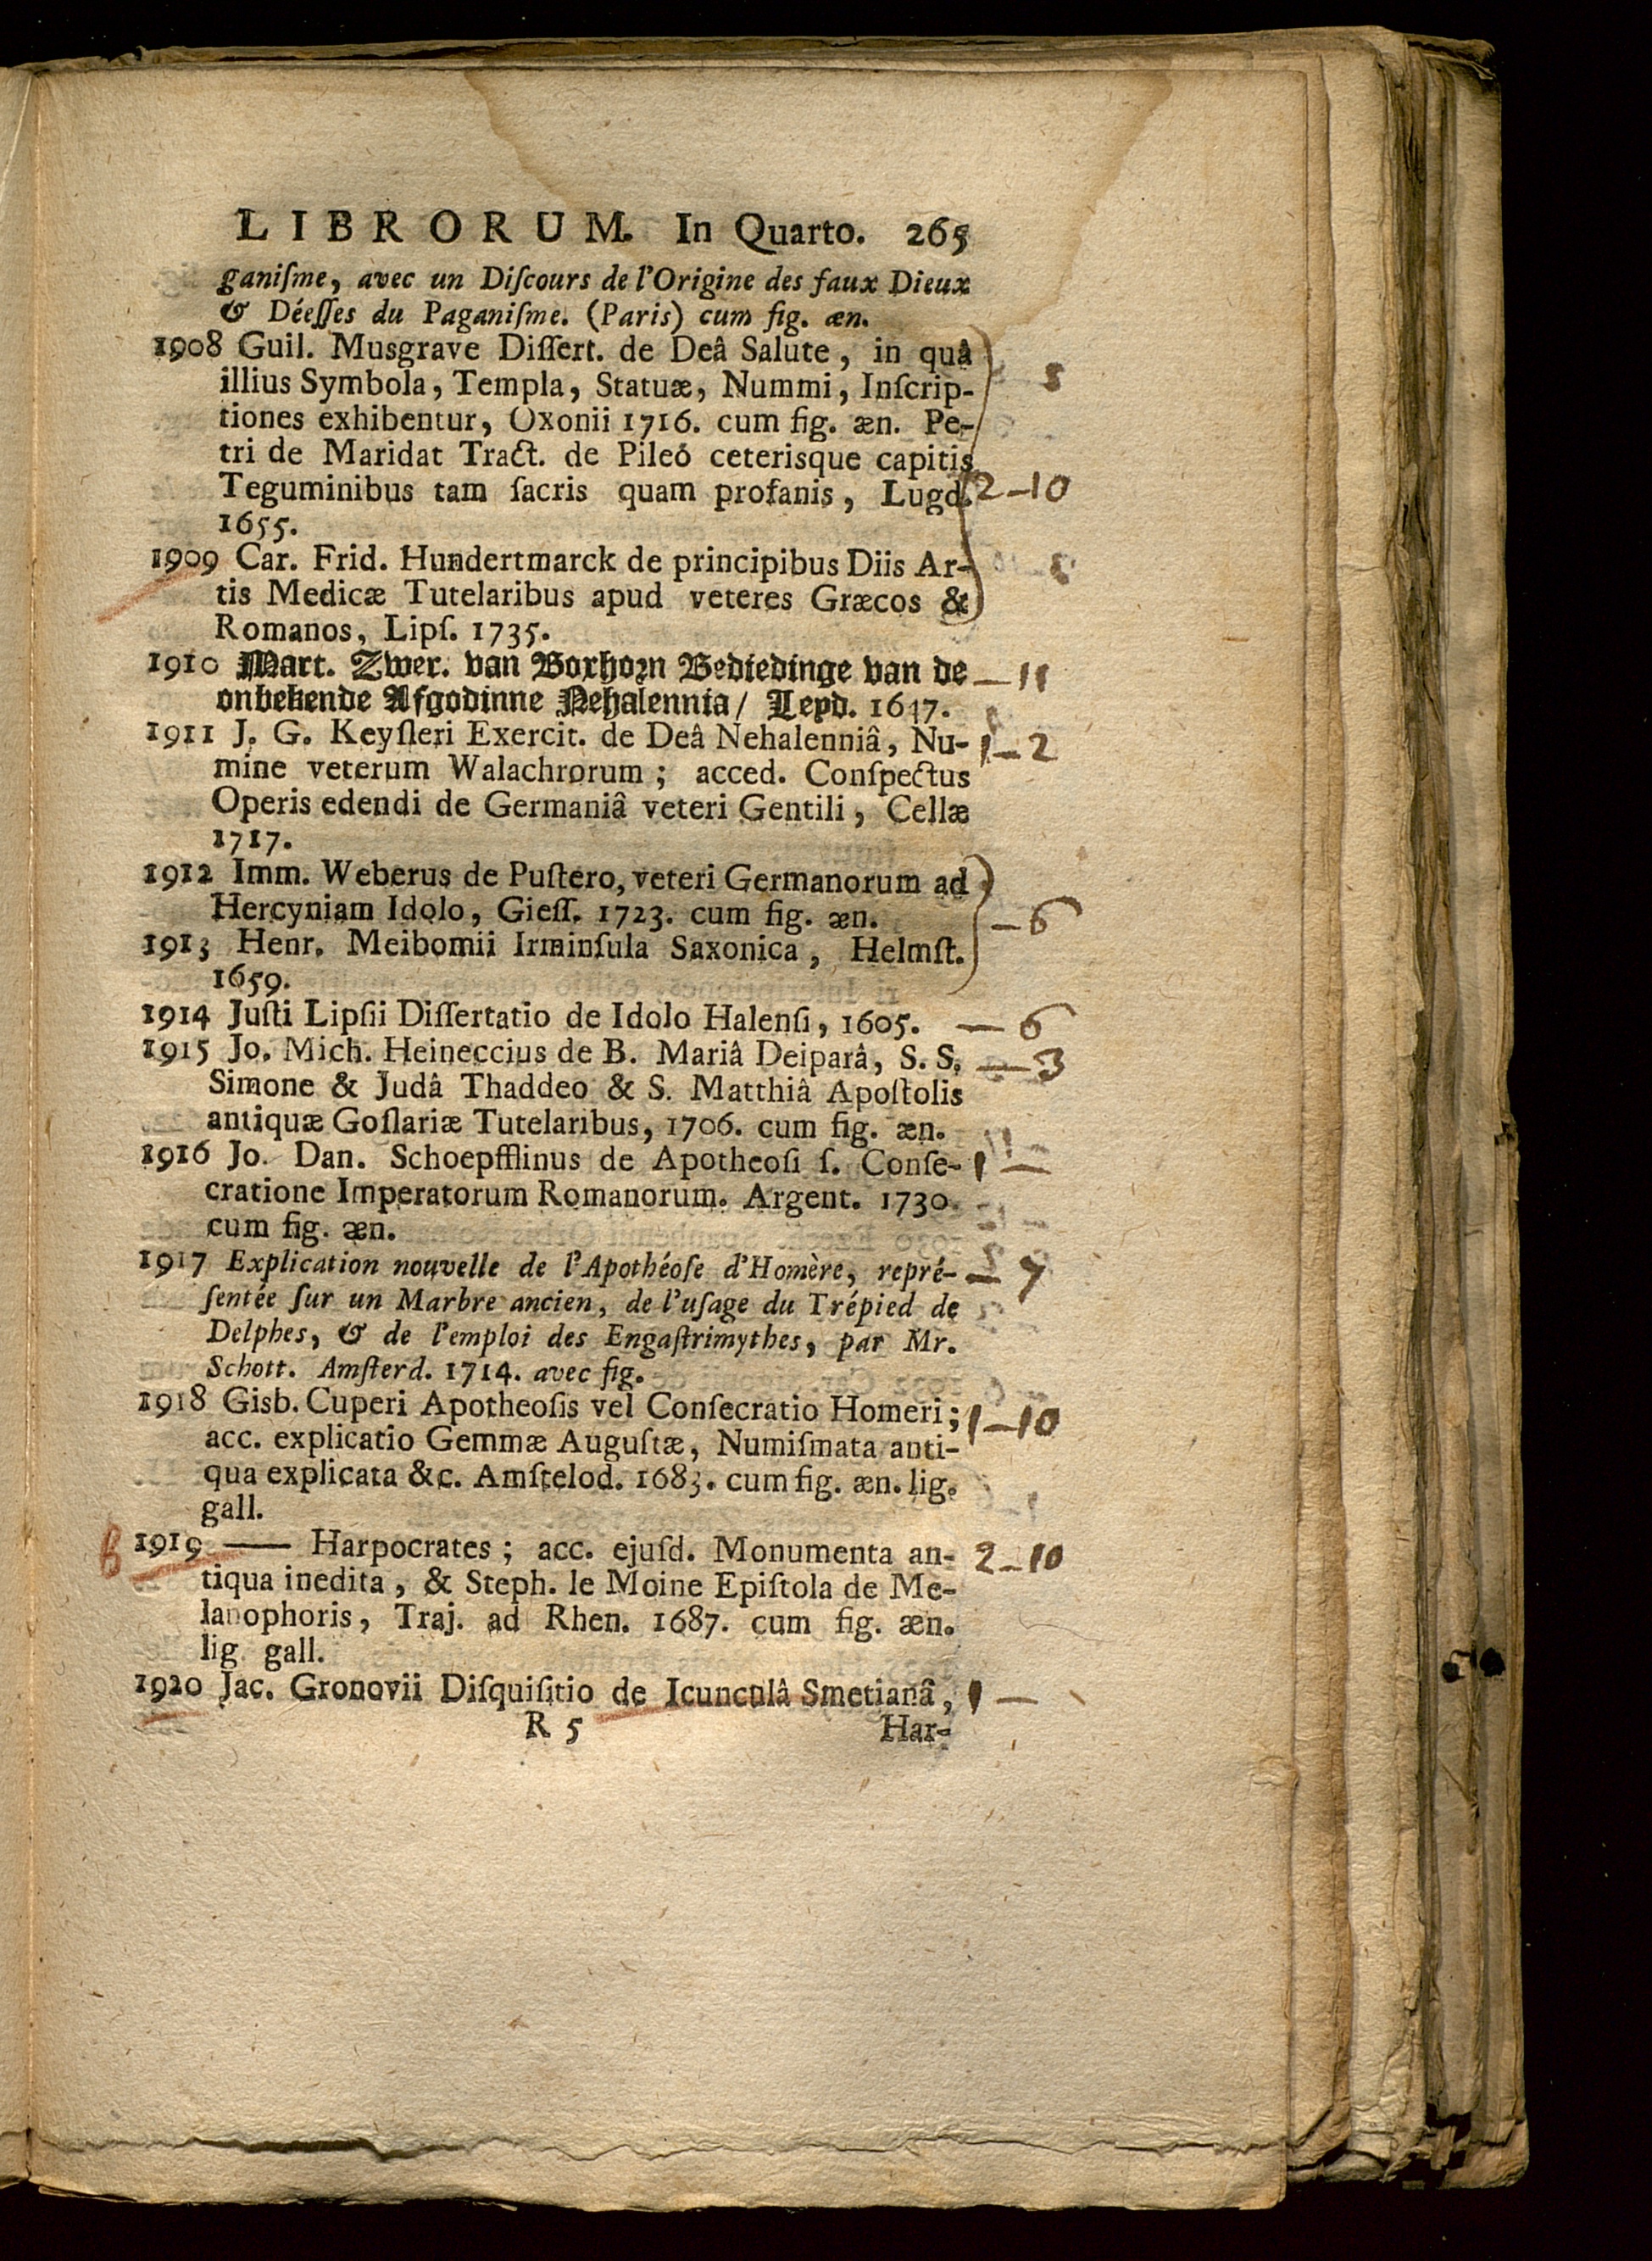 LIBRORUM. In Quarto. 265
ganiſme, avec un Diſcours de l'Origine des faux Dieux
& Déeſſes du Paganiſme. (Paris) cum fig. æn.
1908 Guil. Musgrave Diſſert. de Deâ Salute, in quâ
illius Symbola, Templa, Statuæ, Nummi, Inſcrip-
tiones exhibentur, Oxonii 1716. cum fig. æn. Pe-
tri de Maridat Tract. de Pileó ceterisque capitis
Teguminibus tam ſacris quam profanis, Lugd. 2-10
1655.
1909 Car. Frid. Hundertmarck de principibus Diis Ar-
tis Medicæ Tutelaribus apud veteres Græcos &
Romanos, Lipſ. 1735.
1910 Mart. Zwer. van Boxhorn Bediedinge van de — 11
onbekende Afgodinne Nehalennia / Leyd. 1647.
1911 J. G. Keyſleri Exercit. de Deâ Nehalenniâ, Nu- 1-2
mine veterum Walachrorum; acced. Conſpectus
Operis edendi de Germaniâ veteri Gentili, Cellæ
1717.
1912 Imm. Weberus de Puſtero, veteri Germanorum ad
Hercyniam Idolo, Gieſſ. 1723. cum fig. æn. — 6
1913 Henr. Meibomii Irminſula Saxonica, Helmſt.
1659.
1914 Juſti Lipſii Diſſertatio de Idolo Halenſi, 1605. — 6
1915 Jo. Mich. Heineccius de B. Mariâ Deiparâ, S. S. — 3
Simone & Judâ Thaddeo & S. Matthiâ Apoſtolis
antiquæ Goſlariæ Tutelaribus, 1706. cum fig. æn.
1916 Jo. Dan. Schoepfflinus de Apotheoſi ſ. Conſe- 1 —
cratione Imperatorum Romanorum. Argent. 1730.
cum fig. æn.
1917 Explication nouvelle de l'Apothéoſe d'Homère, repré- — 7
ſentée ſur un Marbre ancien, de l'uſage du Trépied de
Delphes, & de l'emploi des Engaſtrimythes, par Mr.
Schott. Amſterd. 1714. avec fig.
1918 Gisb. Cuperi Apotheoſis vel Conſecratio Homeri; 1-10
acc. explicatio Gemmæ Auguſtæ, Numiſmata anti-
qua explicata &c. Amſtelod. 1683. cum fig. æn. lig.
gall.
1919 —— Harpocrates; acc. ejuſd. Monumenta an- 2-10
tiqua inedita, & Steph. le Moine Epiſtola de Me-
lanophoris, Traj. ad Rhen. 1687. cum fig. æn.
lig gall.
1920 Jac. Gronovii Diſquiſitio de Icunculâ Smetianâ, 1 —
R 5 Har-